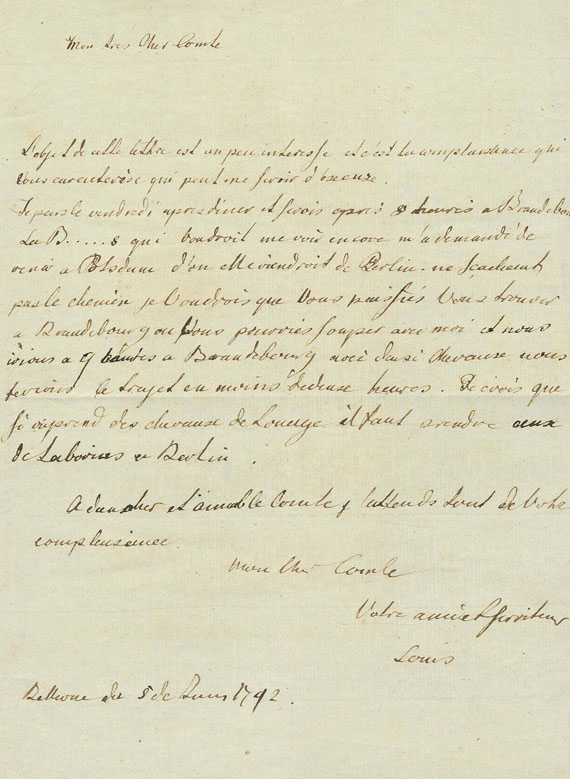 Mon tres Cher Comte
L'objet de cette lettre est un peu interesse et c'est la complaisance qui
vous caracterise qui peut me servir d'excuse.
Je pars le vendredi apres diner et serois apres 8 heures a Brandebou
La B.....s qui voudroit me voir encore m'a demandé de
venir a Potsdam d'on Elle viendroit de Berlin. ne sçachant
pas le chemin je voudrois que Vous puissiés Vous trouver
a Brandebourg ou Vous pouvriés souper avec moi et nous
irions a 9 heures a Brandebourg avec Chevause nous
ferions le trajet en moins de deuse heures. Je crois que
si on prend des chevause de Louage il faut prendre ceux
de a Berlin.
Adieu cher et aimable Comte j'attends tout de Votre
complaisance
Mon Cher Comte
Votre ami et serviteur
Louis
du 5 de 1792.